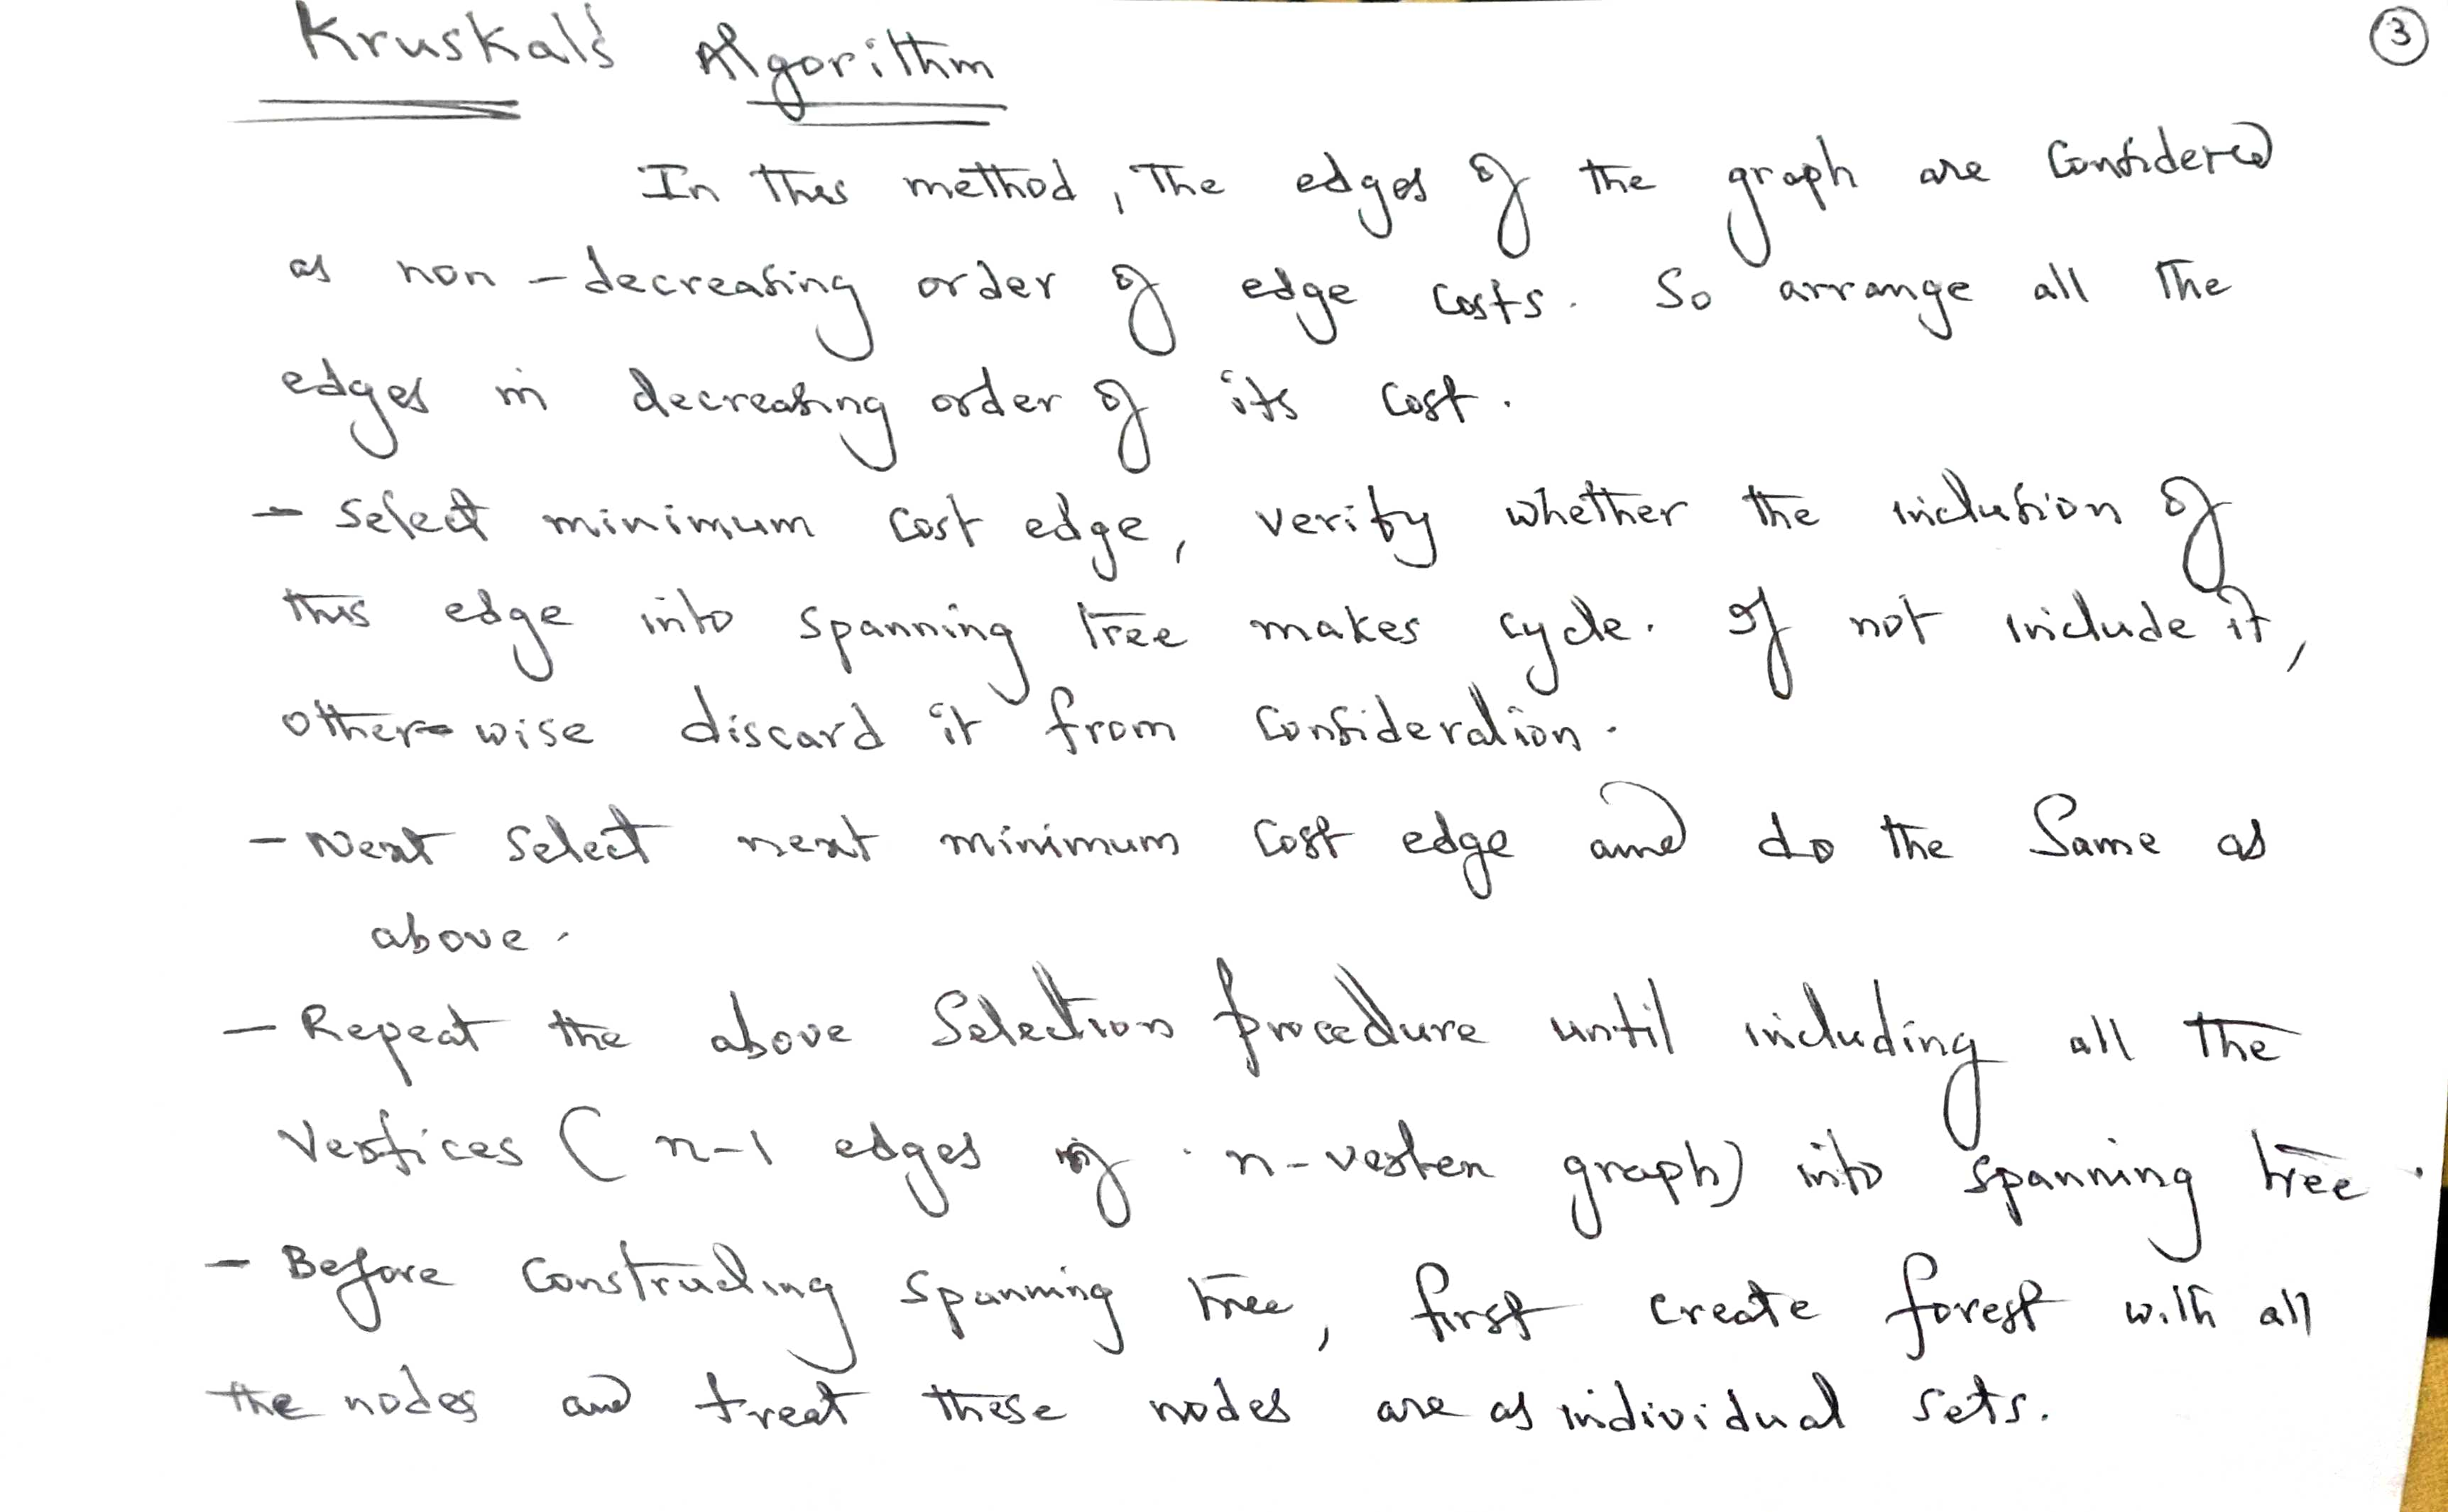 Kruskal's Algorithm
3
In this method, the edges of the graph are considered
as non-decreasing order of edge costs. So arrange all the
edges in decreasing order of its cost.
- Select minimum cost edge, verify whether the inclusion of
this edge into spanning tree makes cycle. If not include it,
other-wise discard it from consideration.
- Next select next minimum cost edge and do the same as
above.
- Repeat the above selection procedure until including all the
vertices (n-1 edges of n-vertex graph) into spanning tree.
- Before constructing spanning tree, first create forest with all
the nodes and treat these nodes are as individual sets.